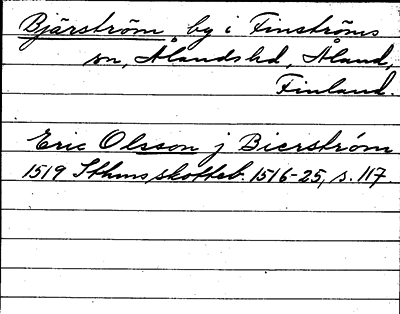 Bjärström, by i Finströms
sn, Ålands hd, Åland,
Finland.
Eric Olsson j Bierström
1519 Sthms skotteb. 1516-25, s. 117.